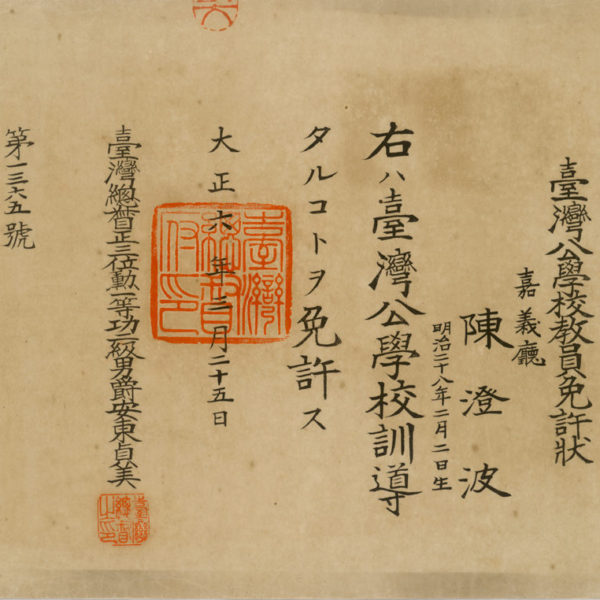 臺灣公學校教員免許狀
嘉義廳
陳澄波
明治二十八年二月二日生
右ハ臺灣公學校訓導
タルコトヲ免許ス
大正六年三月二十五日
臺灣總督正三位勳一等功二級男爵安東貞美
第一三六五號
臺灣總督府印
臺灣總督之印